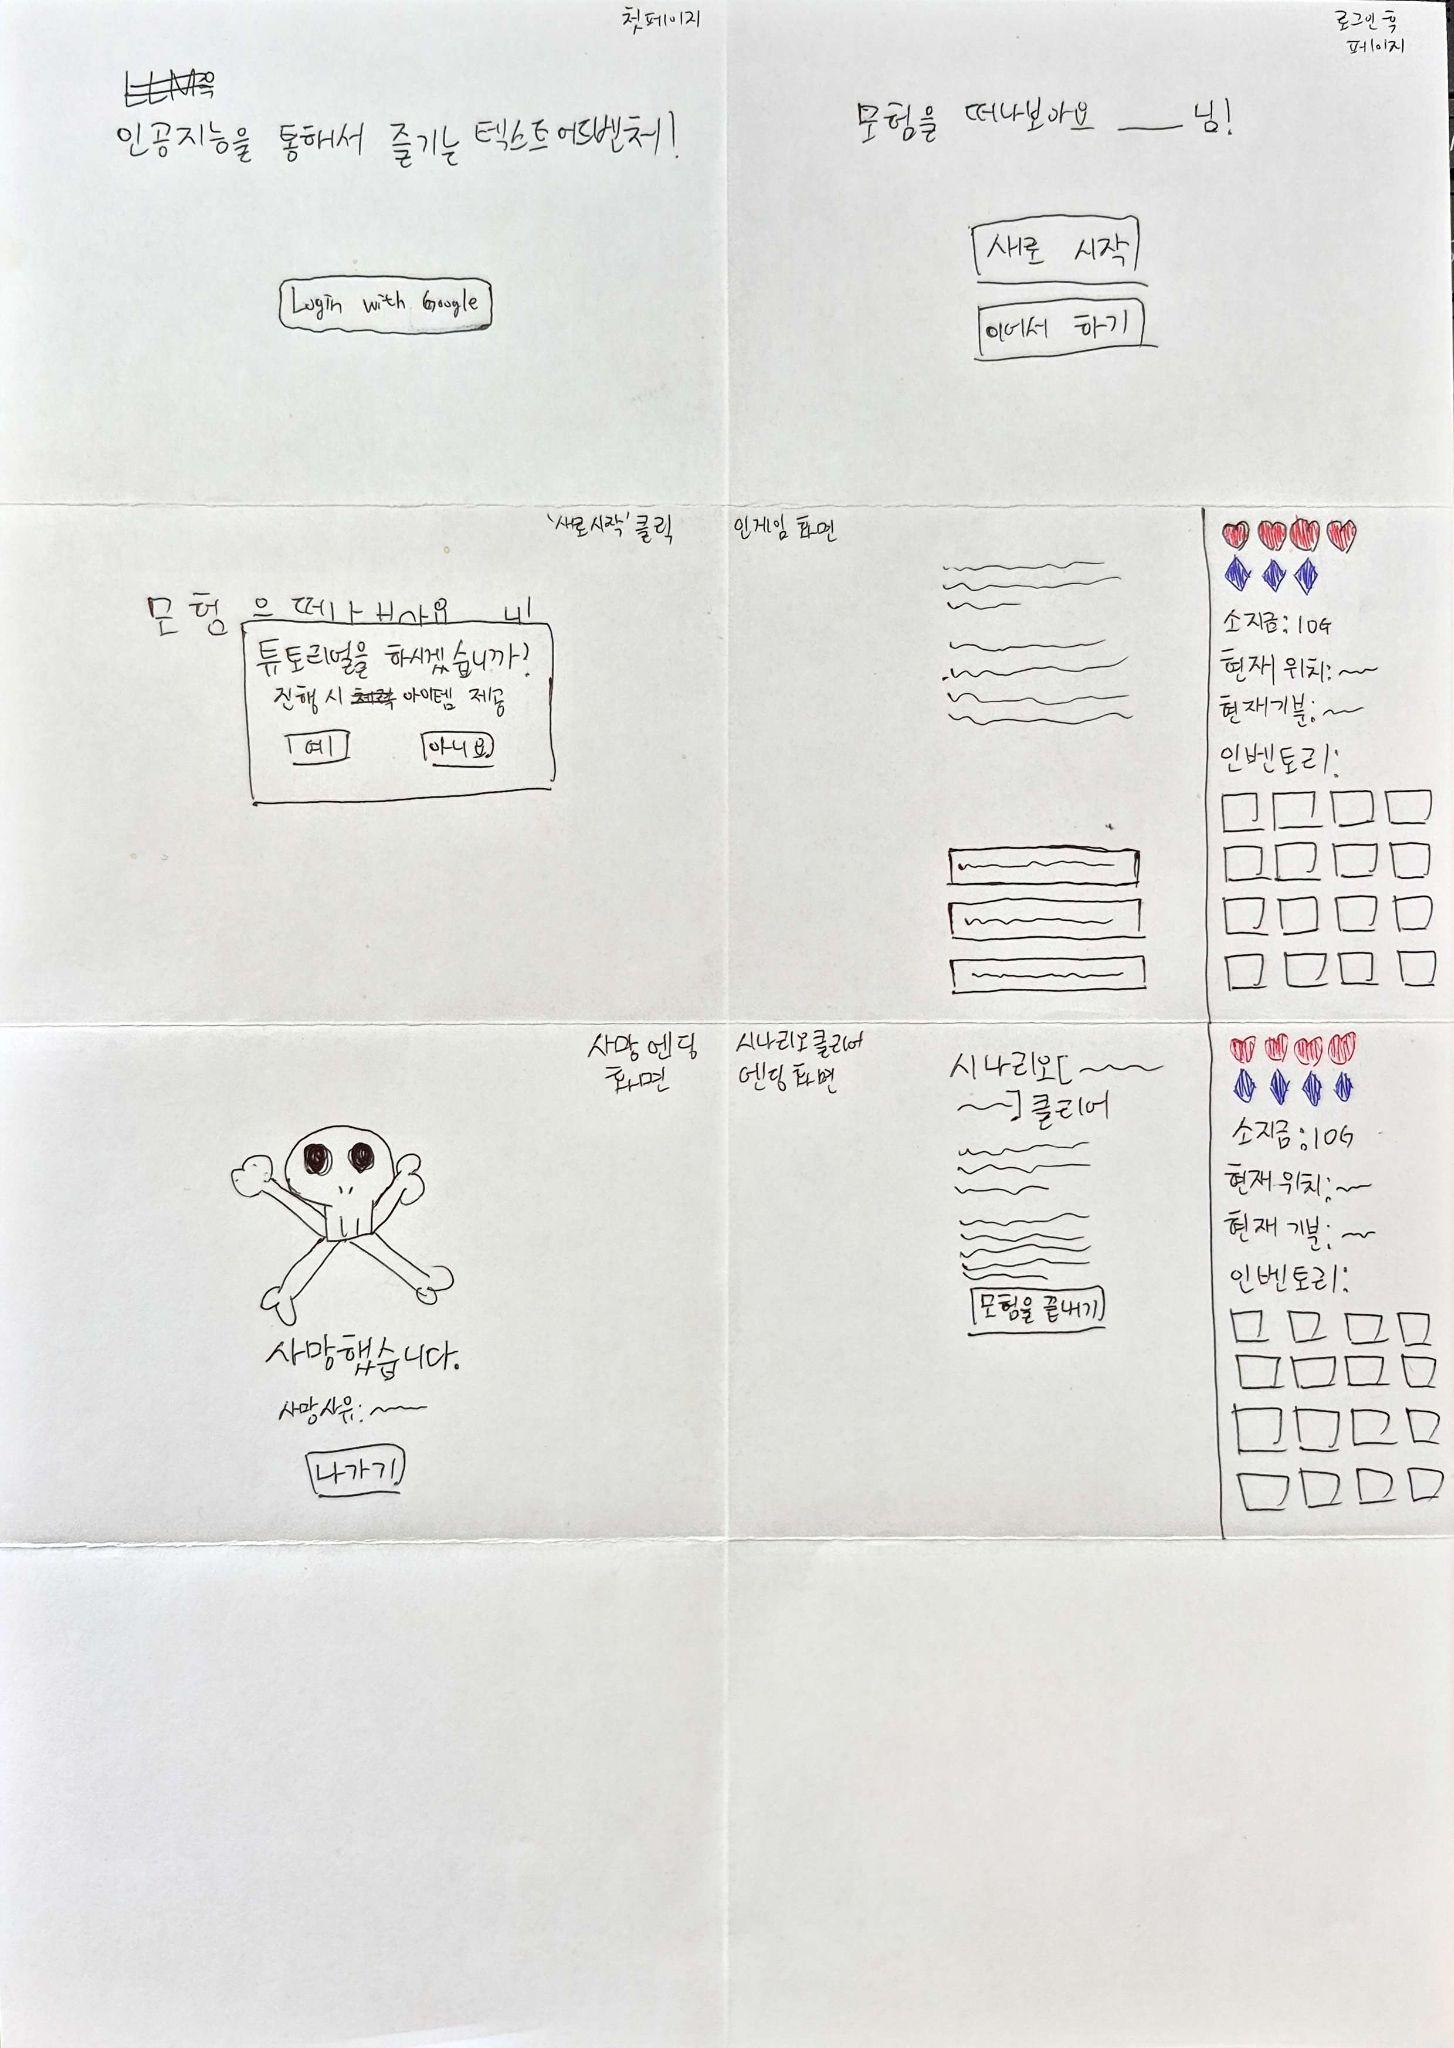 첫페이지
인공지능을 통해서 즐기는 텍스트어드벤처!
Login with Google
로그인 후
페이지
모험을 떠나보아요 ___ 님!
새로 시작
이어서 하기
'새로시작' 클릭
모험
튜토리얼을 하시겠습니까?
진행 시 아이템 제공
예
아니요
인게임 화면
소지금:10G
현재 위치:~~
현재기분:~~
인벤토리:
사망엔딩
화면
사망했습니다.
사망사유:~~
나가기
시나리오클리어
엔딩화면
시나리오[~~
~~]클리어
모험을 끝내기
소지금:10G
현재 위치:~~
현재 기분:~~
인벤토리: